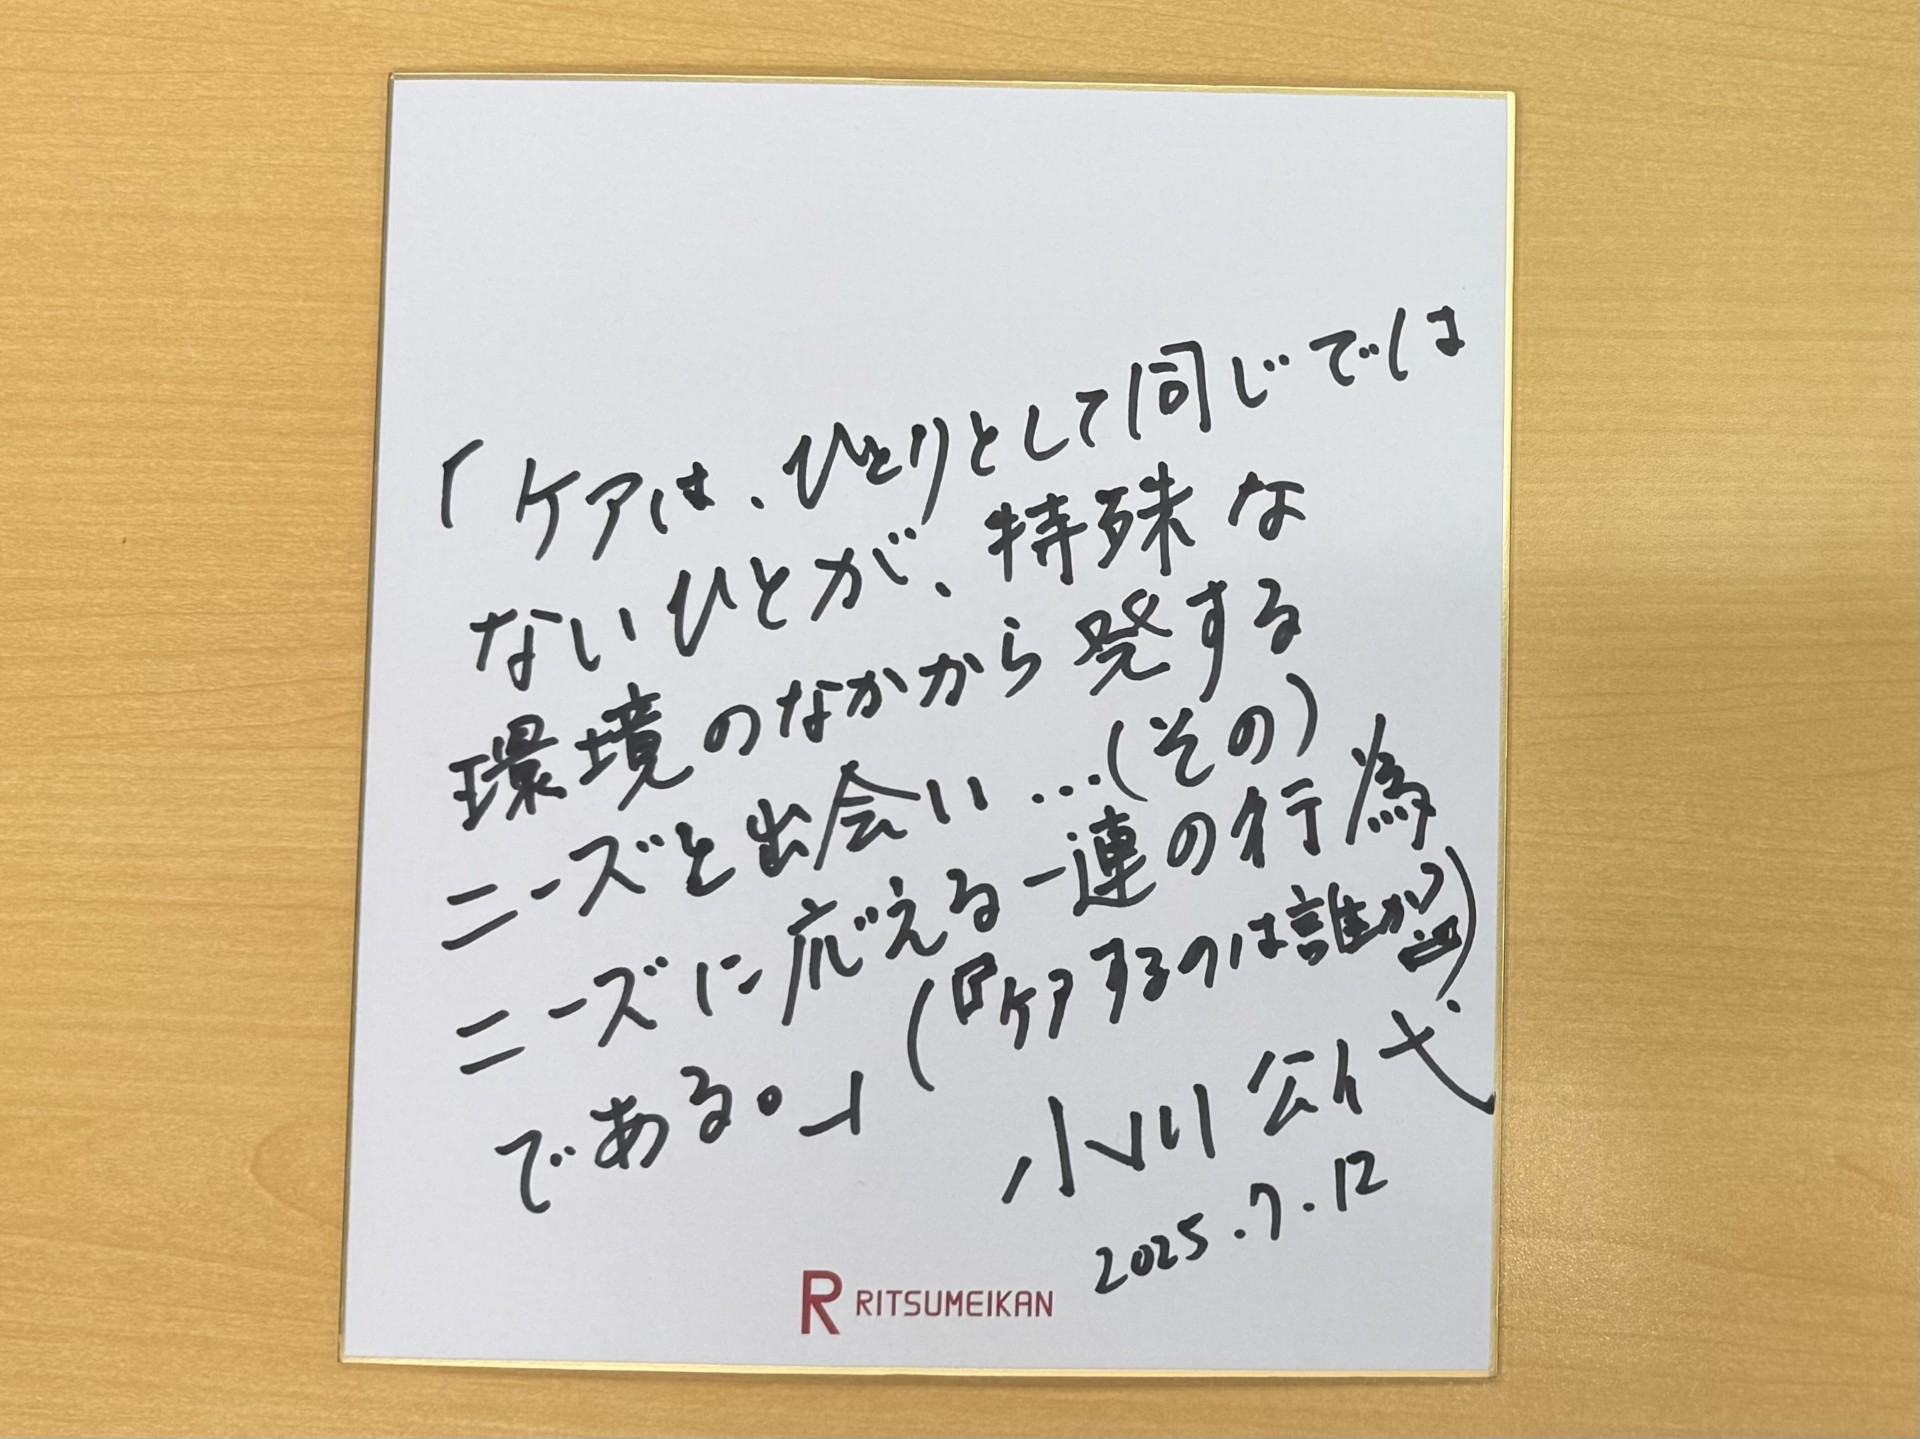 「ケアは、ひとりとして同じでは
ないひとが、特殊な
環境のなかから発する
ニーズと出会い…(その)
ニーズに応える一連の行為
である。」
(『ケアするのは誰か?』)
小川公代
2025.7.12
R RITSUMEIKAN